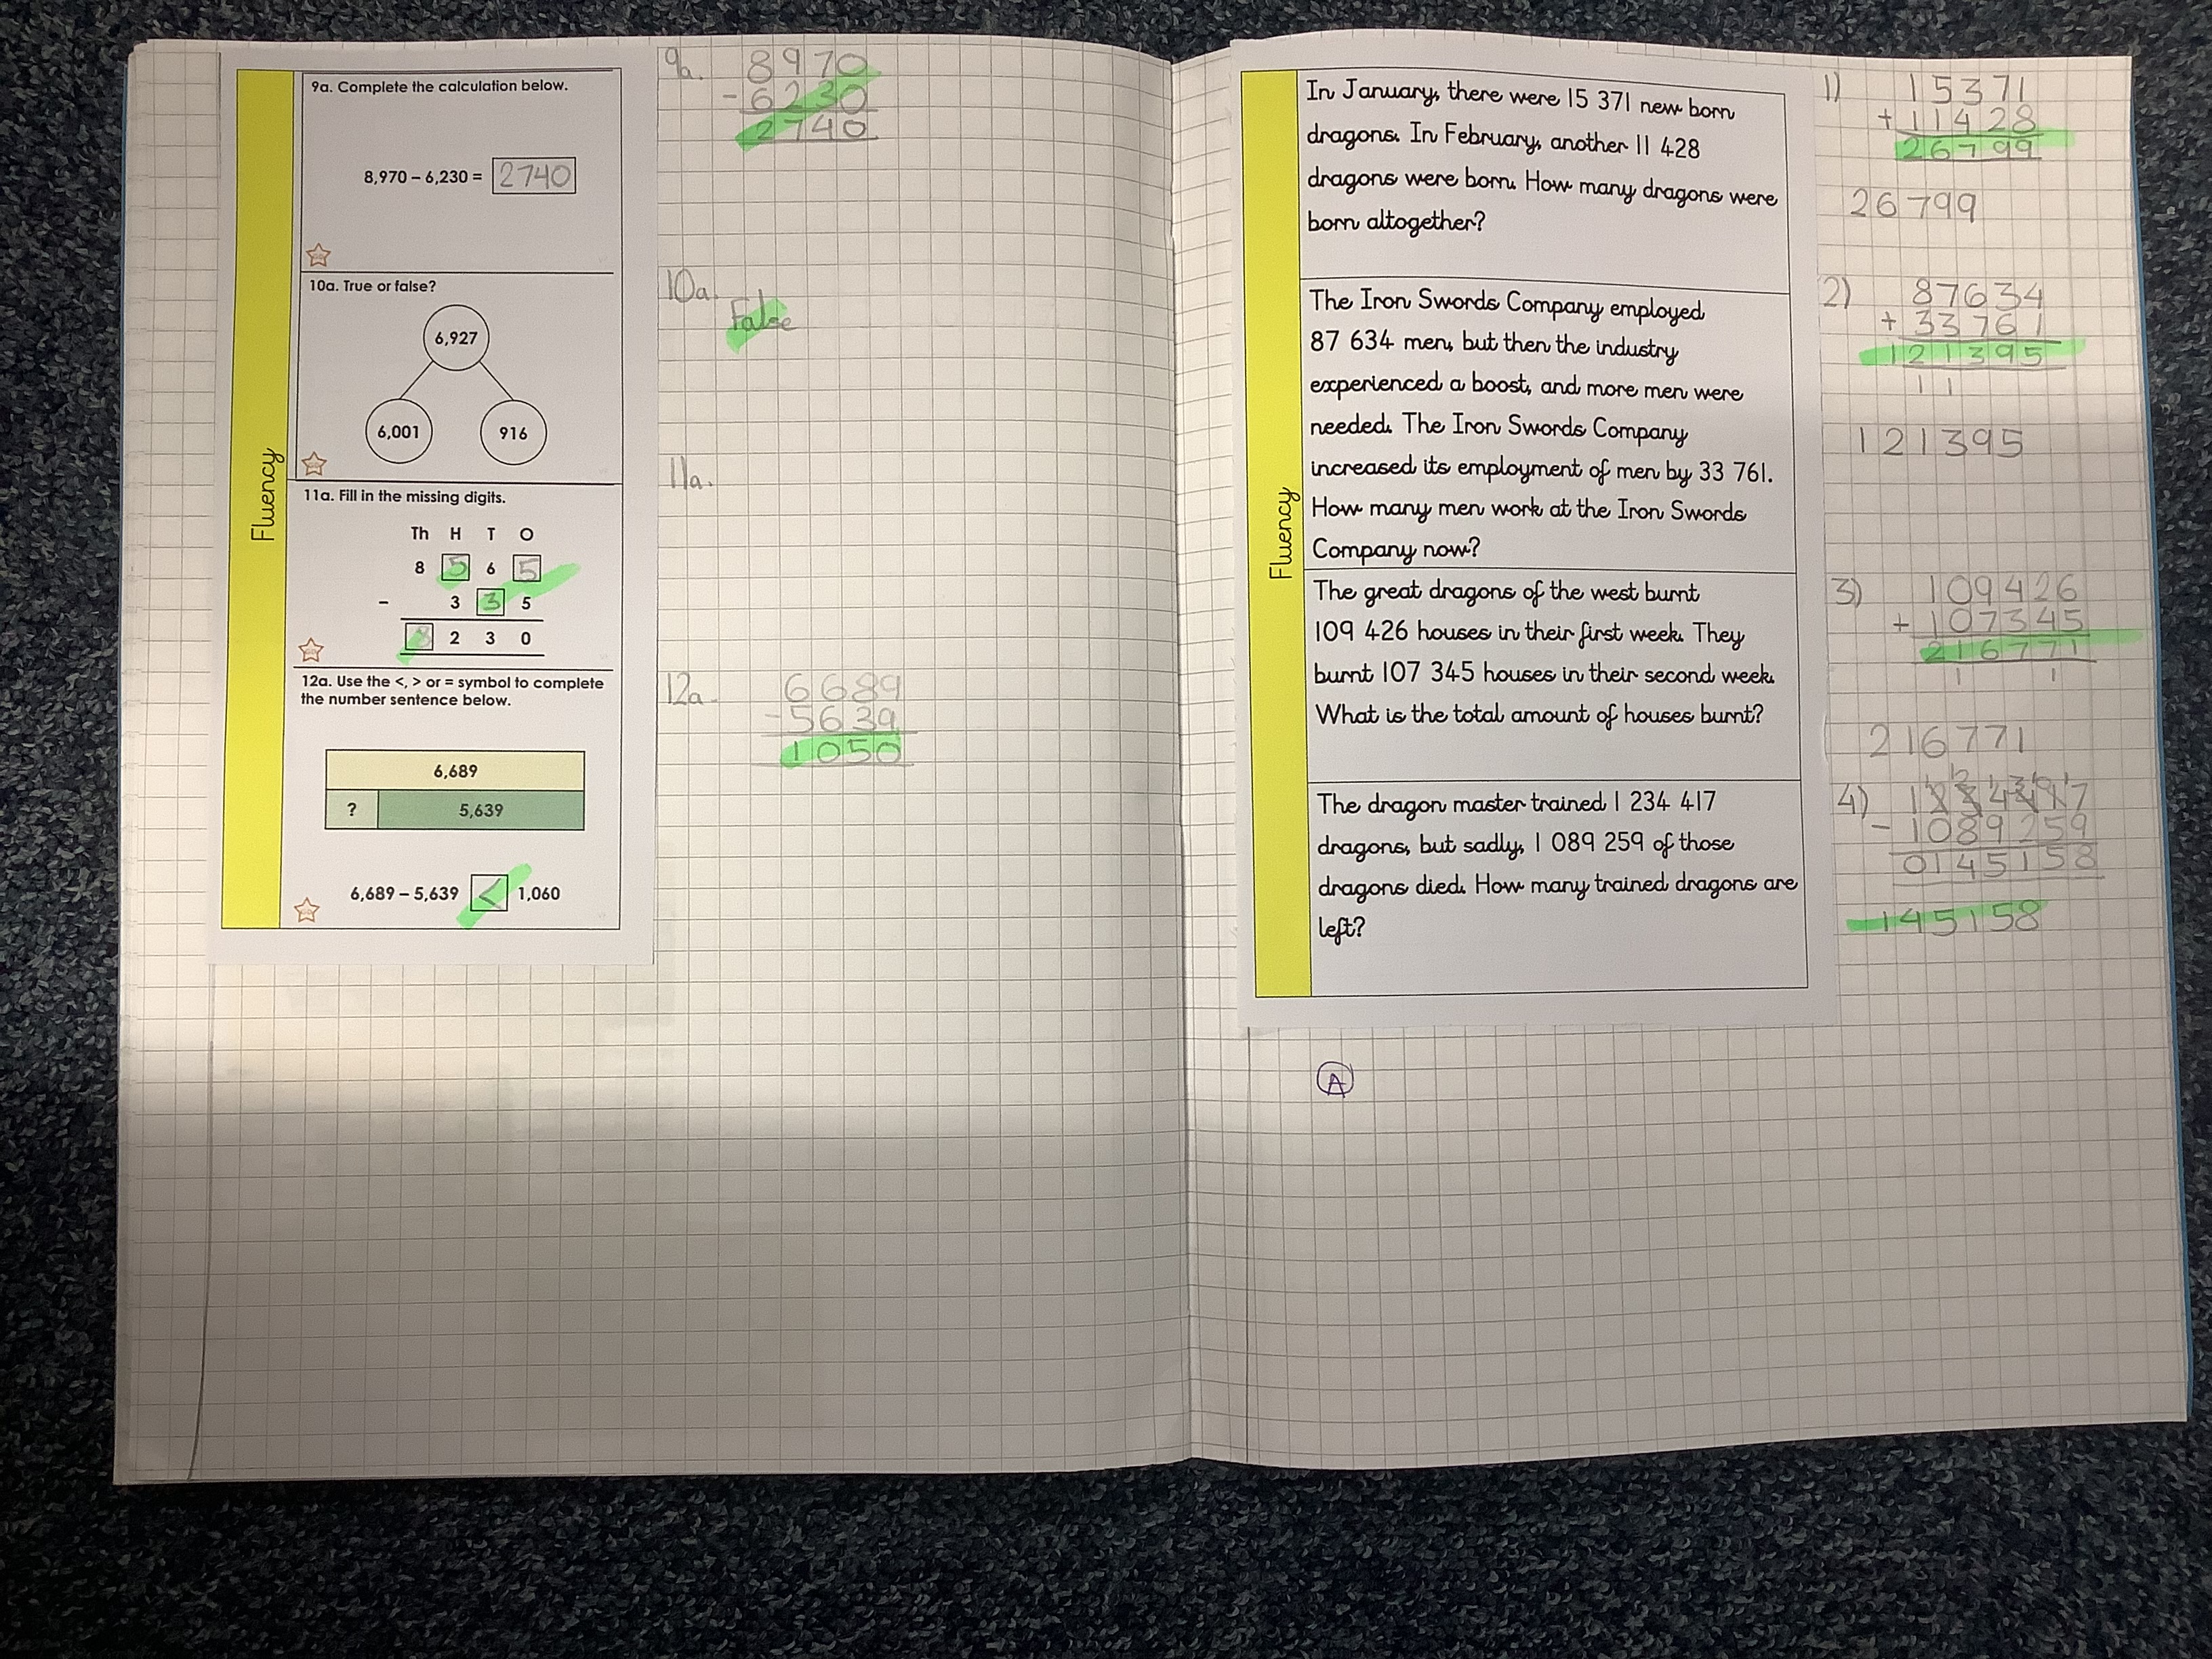 Fluency
9a. Complete the calculation below.
8,970 – 6,230 = 2740
10a. True or false?
6,927
6,001 916
11a. Fill in the missing digits.
Th H T O
8 5 6 5
– 3 3 5
8 2 3 0
12a. Use the <, > or = symbol to complete
the number sentence below.
6,689
? 5,639
6,689 – 5,639 < 1,060
9a. 8970
- 6230
2740
10a.
False
11a.
12a. 6689
- 5639
1050
Fluency
In January, there were 15 371 new born
dragons. In February, another 11 428
dragons were born. How many dragons were
born altogether?
The Iron Swords Company employed
87 634 men, but then the industry
experienced a boost, and more men were
needed. The Iron Swords Company
increased its employment of men by 33 761.
How many men work at the Iron Swords
Company now?
The great dragons of the west burnt
109 426 houses in their first week. They
burnt 107 345 houses in their second week.
What is the total amount of houses burnt?
The dragon master trained 1 234 417
dragons, but sadly, 1 089 259 of those
dragons died. How many trained dragons are
left?
1) 15371
+ 11428
26799
26799
2) 87634
+ 33761
121395
1 1
121395
3) 109426
+ 107345
216771
1 1
216771
4) 1234417
- 1089259
0145158
145158
A